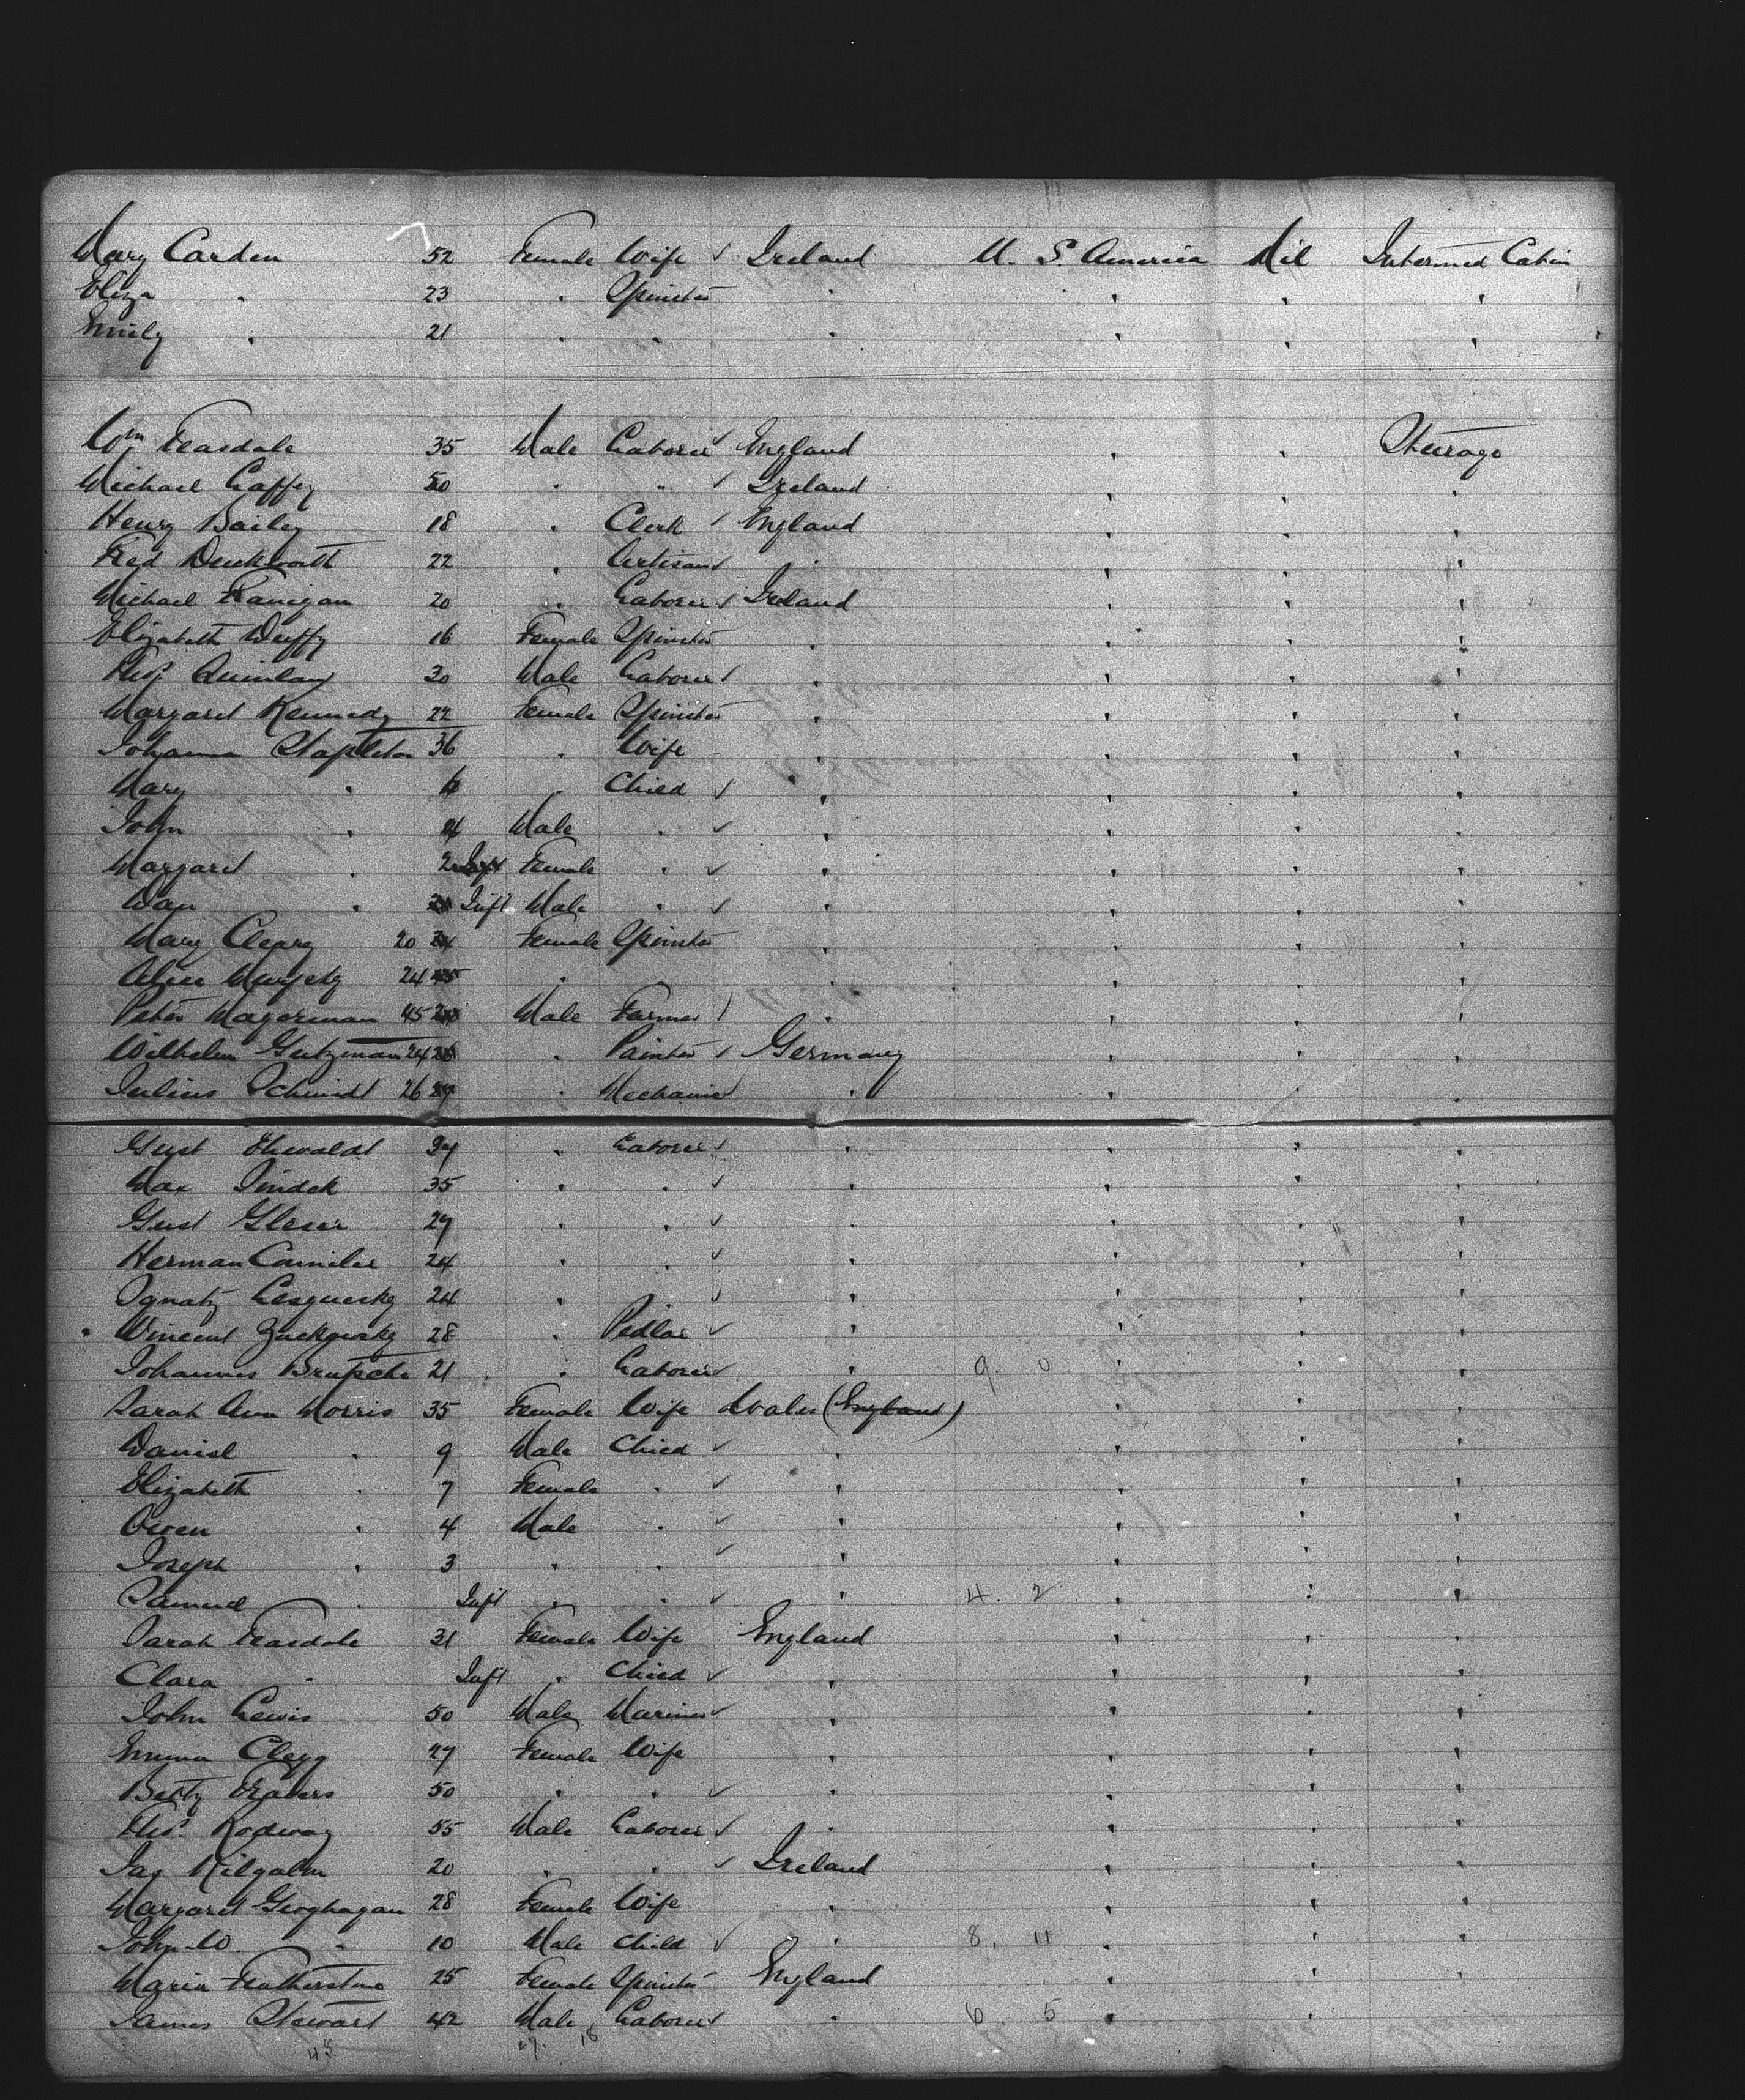 Mary Carden 52 Female Wife ✓ Ireland U. S. America Nil Intermed Cabin
Eliza " 23 " Spinster " " " "
Emily " 21 " " " " " "
Wm Teasdale 35 Male Laborer ✓ England " " Steerage
Michael Caffey 50 " " ✓ Ireland " " "
Henry Bailey 18 " Clerk ✓ England " " "
Fred Duckworth 22 " Artisan ✓ " " " "
Michael Flanigan 20 " Laborer ✓ Ireland " " "
Elizabeth Duffy 16 Female Spinster " " " "
Thos. Quinlan 30 Male Laborer ✓ " " " "
Margaret Kennedy 22 Female Spinster " " " "
Johanna Stapleton 36 " Wife " " " "
Mary " 6 " Child ✓ " " " "
John " 4 Male " ✓ " " " "
Margaret " 2 Female " ✓ " " " "
Dan " Inft Male " ✓ " " " "
Mary Cleary 20 Female Spinster " " " "
Alice 24 " " " " "
Peter Magorman 45 Male Farmer ✓ " " " "
Wilhelm Gutzman 24 " Painter ✓ Germany " " "
Julius Schmidt 26 " Mechanic ✓ " " " "
Gust Ehwaldt 27 " Laborer ✓ " " " "
Max 35 " " ✓ " " " "
Gust Gleser 27 " " ✓ " " " "
Herman 24 " " ✓ " " " "
Ignatz 24 " ✓ " " " "
Vincent 28 " Pedlar ✓ " " " "
Johannes 21 " Laborer ✓ " 9. 0 " " "
Sarah Ann Morris 35 Female Wife Wales (England) " " "
Daniel " 9 Male Child ✓ " " " "
Elizabeth " 7 Female " ✓ " " " "
Owen " 4 Male " ✓ " " " "
Joseph " 3 " " ✓ " " " "
Samuel " Inft " " ✓ " 4. 2 " " "
Sarah Teasdale 31 Female Wife England " " "
Clara " Inft " Child ✓ " " " "
John Lewis 50 Male Mariner ✓ " " " "
Emma Clegg 27 Female Wife " " " "
Betty Travers 50 " " ✓ " " " "
Thos. Rodway 55 Male Laborer ✓ " " " "
Jas Kilgalm 20 " " ✓ Ireland " " "
Margaret Geoghagan 28 Female Wife " " " "
John W. " 10 Male Child ✓ " 8. 11 " " "
Maria Featherstone 25 Female Spinster England " " "
James Stewart 42 Male Laborer ✓ " 6. 5 " " "
45 27. 18